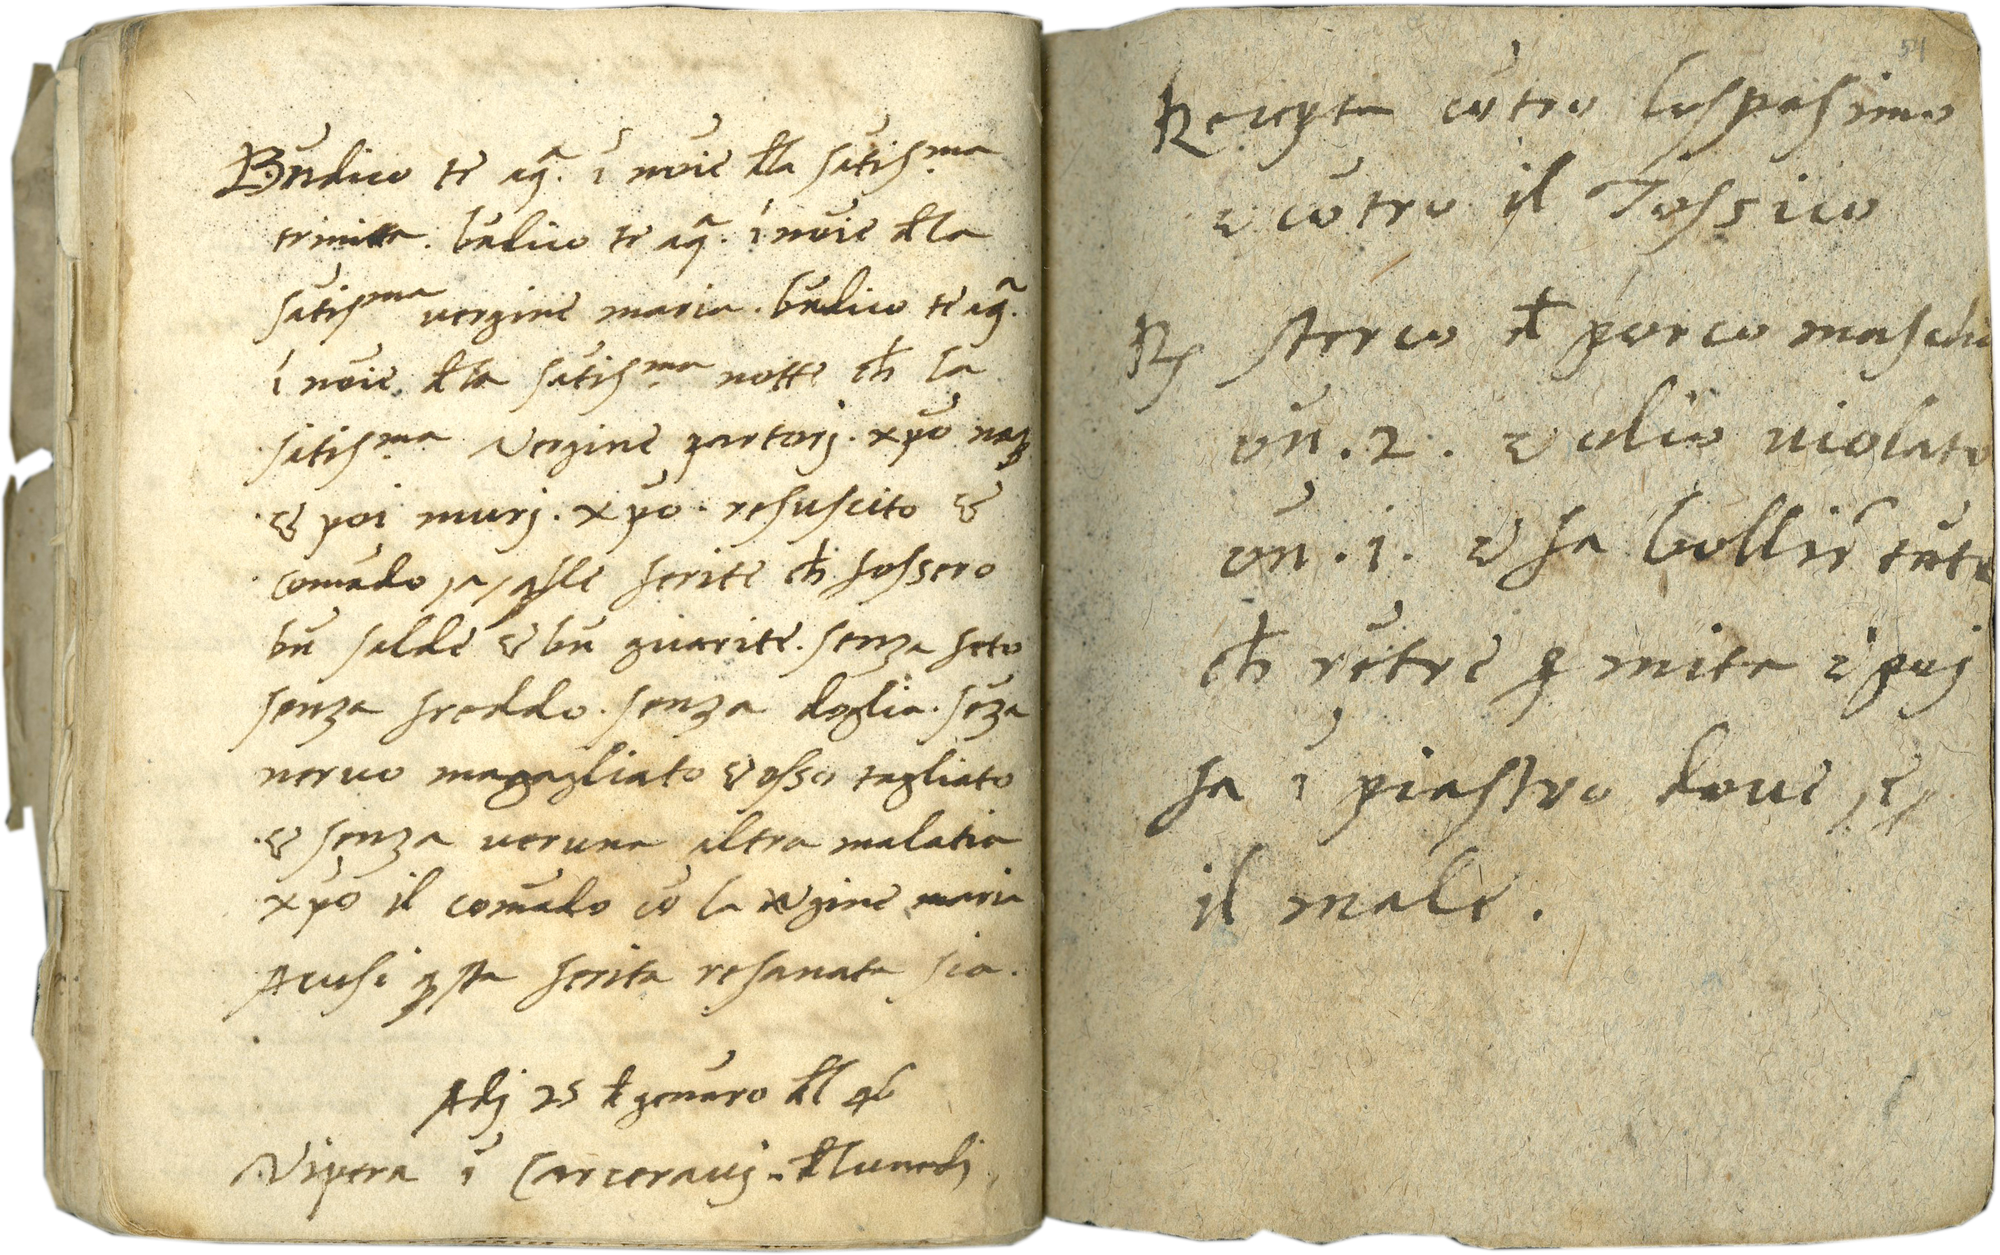 Bn̄dico te aq̃. ī nōie đla sātisma
trinita. bn̄dico te aq̃. ī nōie đla
sātisma vergine maria. bn̄dico te aq̃.
ī nōie. đla sātisma notte cħ la
sātisma Vergine partorj. xp̄o naq̃
& poi murj. xp̄o. resuscito &
comādo a q̃lle ferite cħ fossero
bn̄ salde & bn̄ guarite. senza feto
senza freddo. senza doglia. sēza
neruo magagliato & osso tagliato
& senza veruna altra malatia
xp̄o il comādo cō la v̄gine maria
Acusi q̃sta ferita resanata sia.
Adj 25 đ genāro đl 46
Vipera ī Carcerauj. đlunedj
54
Recepta cōtro lo spasimo
& cōtro il Tossico
℞ sterco đ porco maschio
ōn. 2. & olio violato
ōn. i. & fa bollir̄ tāto
cħ rētre ꝑ mita & poj
fa ī piastro doue /e/
il male.